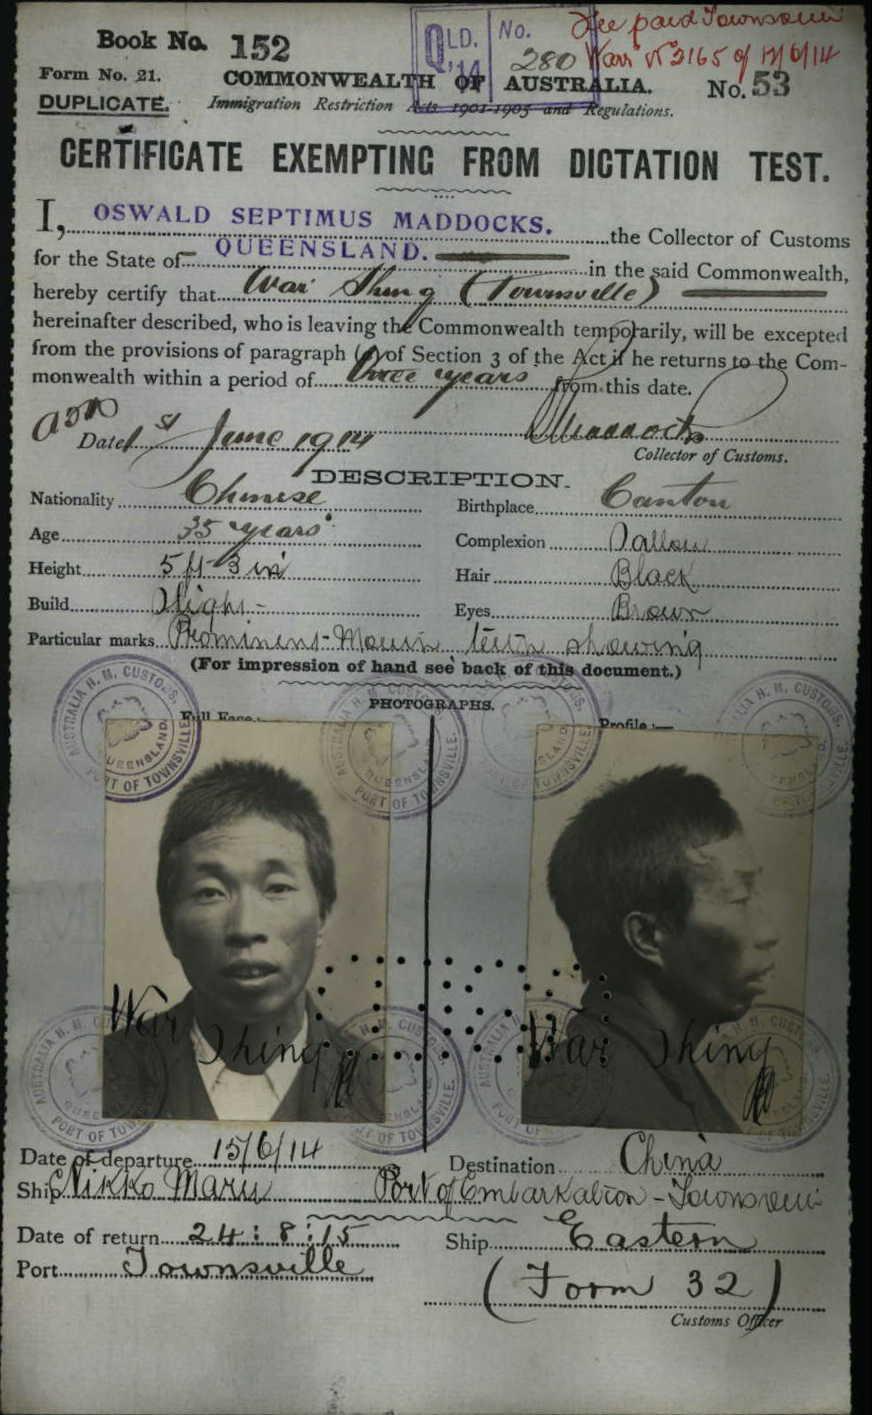 Book No. 152
QLD.
'14
No.
280
Fee paid Townsville
Warr No 2165 of 12/6/14
Form No. 21.
COMMONWEALTH OF AUSTRALIA.
No. 53
DUPLICATE.
Immigration Restriction Acts 1901-1905 and Regulations.
CERTIFICATE EXEMPTING FROM DICTATION TEST.
I, OSWALD SEPTIMUS MADDOCKS. the Collector of Customs
for the State of QUEENSLAND. in the said Commonwealth,
hereby certify that War Shing (Townsville)
hereinafter described, who is leaving the Commonwealth temporarily, will be excepted
from the provisions of paragraph (a) of Section 3 of the Act if he returns to the Com-
monwealth within a period of three years from this date.
Date 1st June 1914
OSMaddocks
Collector of Customs.
DESCRIPTION.
Nationality Chinese
Birthplace Canton
Age 35 years
Complexion Sallow
Height 5 ft 3 in
Hair Black
Build Slight
Eyes Brown
Particular marks Prominent Mouth teeth showing
(For impression of hand see back of this document.)
PHOTOGRAPHS.
Full Face:—
Profile:—
AUSTRALIA H. M. CUSTOMS.
QUEENSLAND
PORT OF TOWNSVILLE.
War Shing
War Shing
Date of departure 15/6/14
Destination China
Ship Nikko Maru
Port of Embarkation - Townsville
Date of return 24:8:15
Ship Eastern
Port Townsville
(Form 32)
Customs Officer